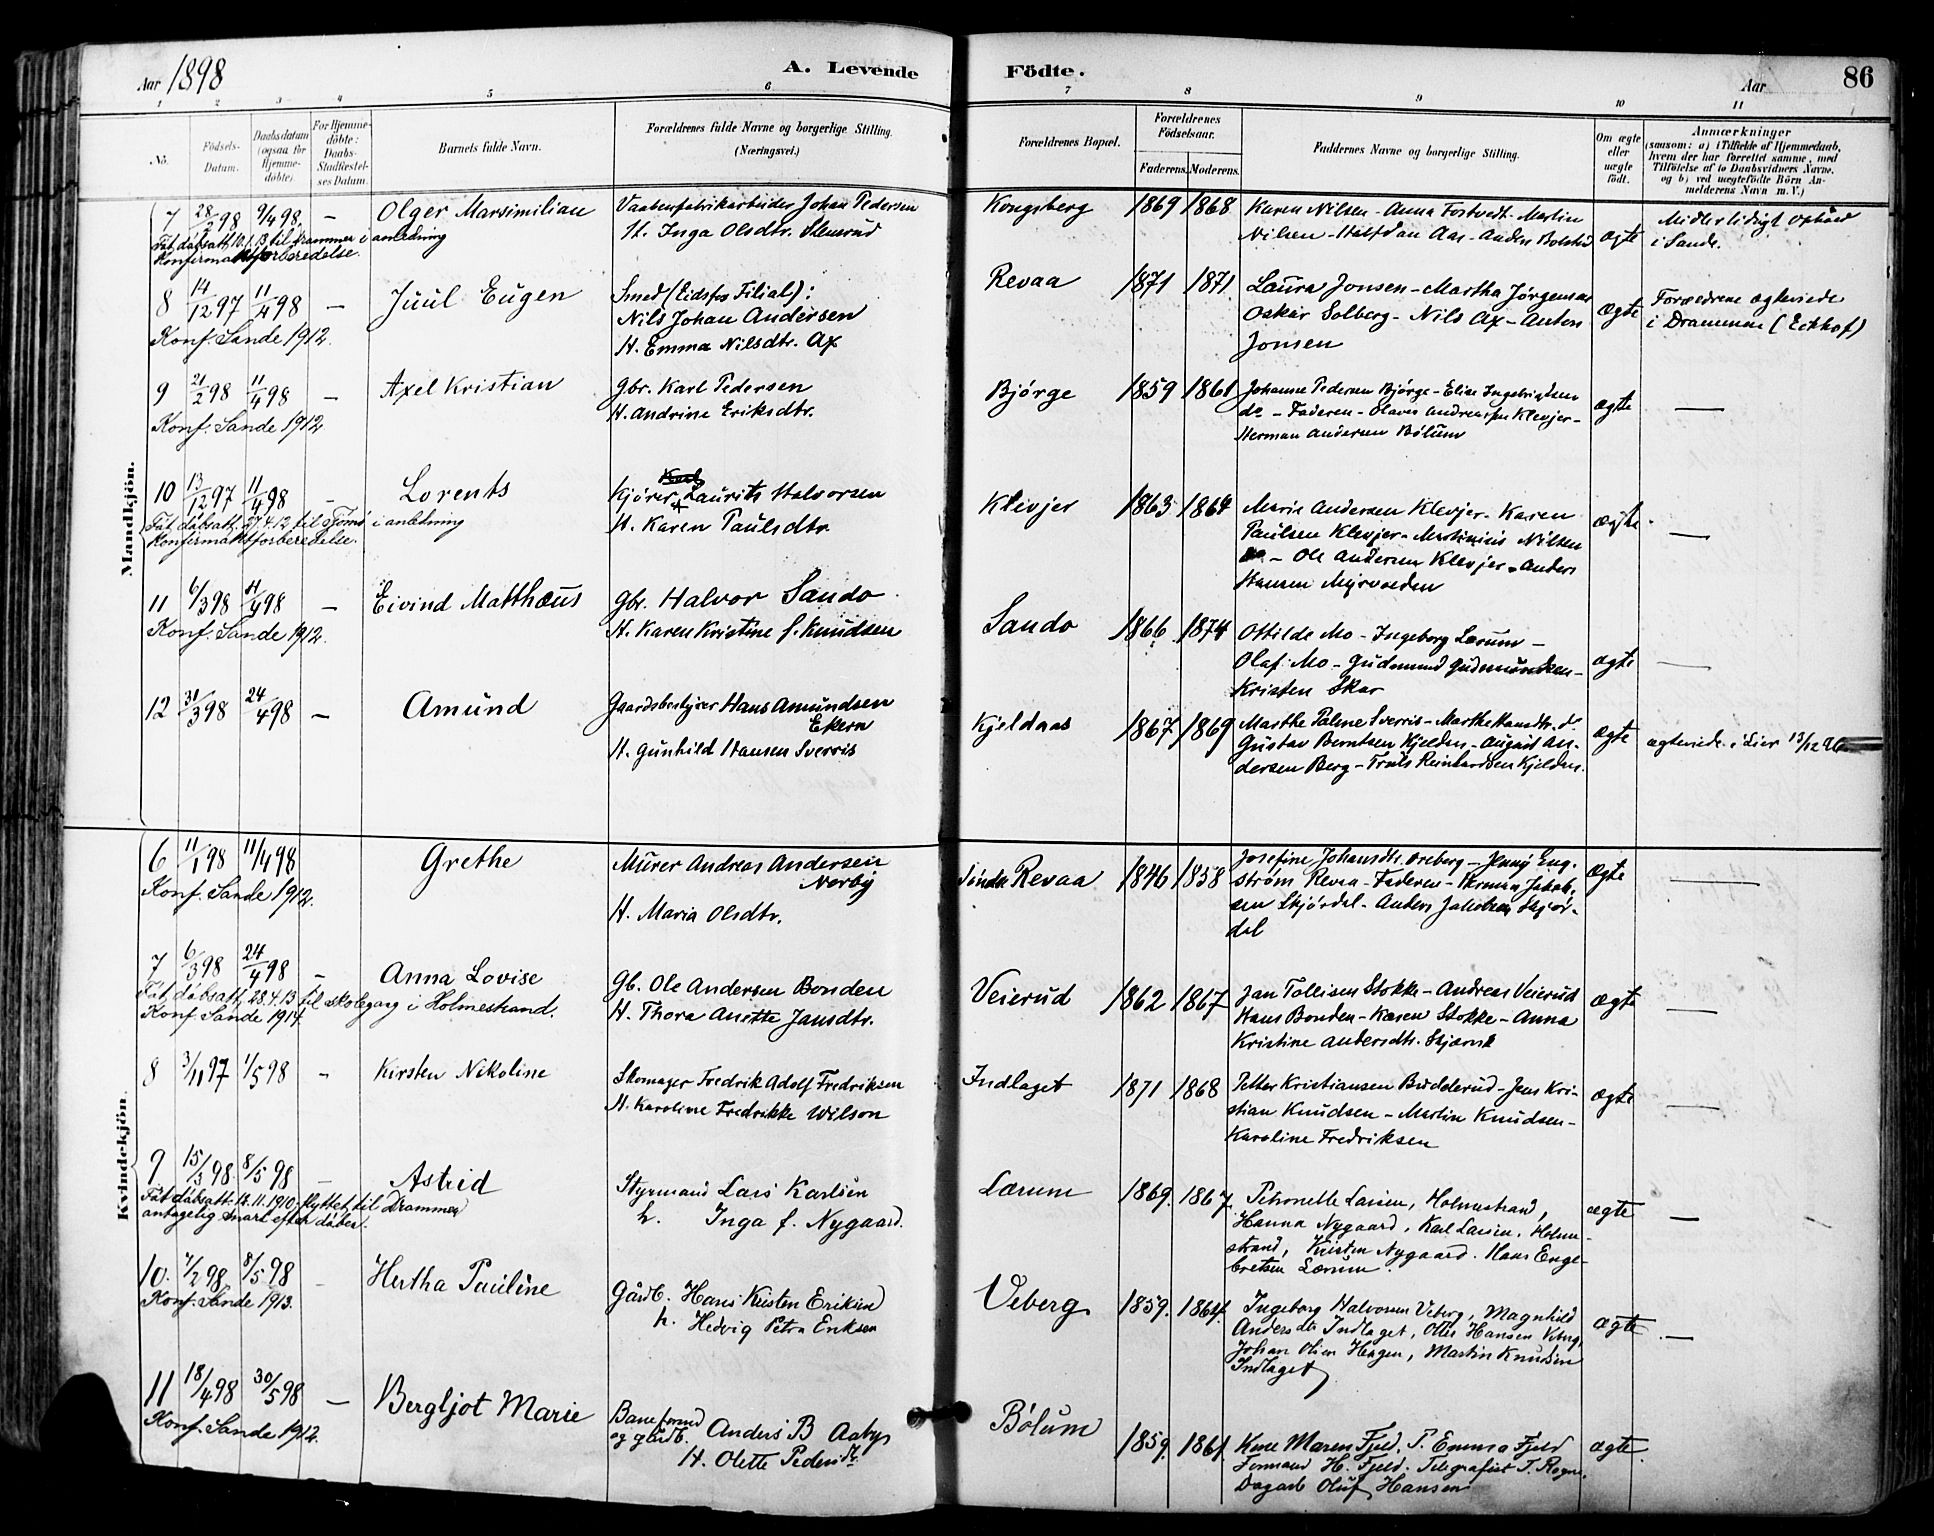 Aar 1898
A. Levende
Födte.
Aar
86
1 2 3 4 5 6 7 8 9 10 11
No.
Födsels-Datum.
Daabsdatum (ogsaa for Hjemme-döbte).
For Hjemme-döbte: Daabs-Stadfæstel-ses Datum.
Barnets fulde Navn.
Forældrenes fulde Navne og borgerlige Stilling. (Næringsvei.)
Forældrenes Bopæl.
Forældrenes Födselsaar.
Faderens. Moderens.
Faddernes Navne og borgerlige Stilling.
Om ægte eller uægte født.
Anmærkninger
(saasom: a) i Tilfælde af Hjemmedaab,
hvem der har forrettet samme, med
Tilföielse af to Daabsvidners Navne.
og b) ved uægtefödte Börn An-
melderens Navn m. V.)
Mandkjön.
7 28/2 98 9/4 98. – Olger Marsimilian
Vaabenfabrikarbeider Johan Pedersen
H. Inga Olsdtr. Stensrud
Kongsberg 1869 1868
Karen Nilsen - Anna Fostvedt - Martin
Nilsen - Halfdan Aas - Anders Bolstad
ægte
Midlertidigt ophold
i Sande.
Fåt dåbsatt. 10.1.13 til Drammen i anledning
Konfirmantforberedelse.
8 14/12 97 11/4 98 – Juul Eugen
Smed (Eidsfos Filial):
Nils Johan Andersen
H. Emma Nilsdtr. Ax
Revaa 1871 1871
Laura Jonsen - Martha Jørgensen
Oskar Solberg - Nils Ax - Anton
Jonsen
ægte
Forældrene ægteviede
i Drammen (Eckhof)
Konf. Sande 1912.
9 21/2 98 11/4 98 – Axel Kristian
Gbr. Karl Pedersen
H. Andrine Eriksdtr.
Bjørge 1859 1861
Johanne Pedersen Bjørge - Elise Ingebrigtsen
do - Faderen - Olaves Andreassen Klevjer -
Herman Andersen Bølum
ægte –
Konf. Sande 1912
10 13/12 97 11/4 98 – Lorents
Kjører Laurits Halvorsen
H. Karen Paulsdtr.
Klevjer 1863 1864
Marie Andersen Klevjer - Karen
Paulsen Klevjer - Martinius Nilsen
do - Ole Andersen Klevjer - Anders
Hansen Myrvolden
ægte –
Fåt dåbsatt. 27.4.12 til Tjømø i anledning
Konfirmantforberedelse.
11 6/3 98 11/4 98 – Eivind Matthæus
Gbr. Halvor Sando
H. Karen Kristine f. Knudsen
Sando 1866 1874
Ottilde Mo - Ingeborg Lærum -
Olaf Mo - Gudmund Gudmundsen -
Kristen Skar
ægte –
Konf. Sande 1912.
12 31/3 98 24/4 98 – Amund
Gaardsbestyrer Hans Amundsen
Ekern
H. Gunhild Hansen Sverris
Kjeldaas 1867 1869
Marthe Paline Sverris - Marthe Hansdtr. do
Gustav Berntsen Kjeldaas - August An-
dersen Berg - Truls Reinhardsen Kjeldaas.
ægte
ægteviede i Lier 13/12 96
Kvindekjön.
6 11/1 98 11/4 98 Grethe
Murer Andreas Andersen
Nerby
H. Maria Olsdtr.
Søndre Revaa 1846 1858
Josefine Johansdtr. Oreberg - Jenny Eng-
strøm Revaa - Faderen - Herman Jakob-
sen Skjørdal - Anders Jakobsen Skjør-
dal
ægte –
Konf. Sande 1912.
7 6/3 98 24/4 98 – Anna Lovise
Gb. Ole Andersen Bonden
H. Thora Anette Jansdtr.
Veierud 1862 1867
Jan Tollisen Stokke - Andreas Veierud
Hans Bonden - Karen Stokke - Anna
Kristine Andersdtr. Skjørsk
ægte –
Fåt dåbsatt. 28.4.13 til skolegang i Holmestrand.
Konf. Sande 1914.
8 3/11 97 1/5 98 – Kirsten Nikoline
Skomager Fredrik Adolf Fredriksen
H. Karoline Fredrikke Wilson
Indlaget 1871 1868
Petter Kristiansen Budderud - Jens Kri-
stian Knudsen - Martin Knudsen -
Karoline Fredriksen
ægte –
9 15/3 98. 8/5 98 – Astrid
Styrmand Lars Karlsen
h. Inga f. Nygaard.
Lærum 1869. 1867.
Petronelle Larsen, Holmestrand,
Hanna Nygaard, Karl Larsen, Holme-
strand, Kristen Nygaard. Hans Enge-
bretsen Lærum.
ægte –
Fåt dåbsatt. 18.11.1910, flyttet til Drammen
antagelig snart efter dåben.
10. 7/2 98 8/5 98 – Hertha Pauline
Gårdb. Hans Kristen Eriksen
h. Hedvig Petra Eriksen
Veberg 1859. 1864.
Ingeborg Halvorsen Veberg, Magnhild
Andersdtr Indlaget, Otter Hansen Veberg,
Johan Olsen Hagen, Martin Knudsen
Indlaget
ægte –
Konf. Sande 1913.
11 18/4 98 30/5 98 – Bergljot Marie
Baneformd og gårdb. Anders B Aaby
H. Olette Pedersdtr.
Bølum 1859. 1861.
Kone Maren Fjeld. P. Emma Fjeld
Formand H. Fjeld. Telegrafist T. Rogne.
Dagarb Oluf Hansen
ægte.
Konf. Sande 1912.